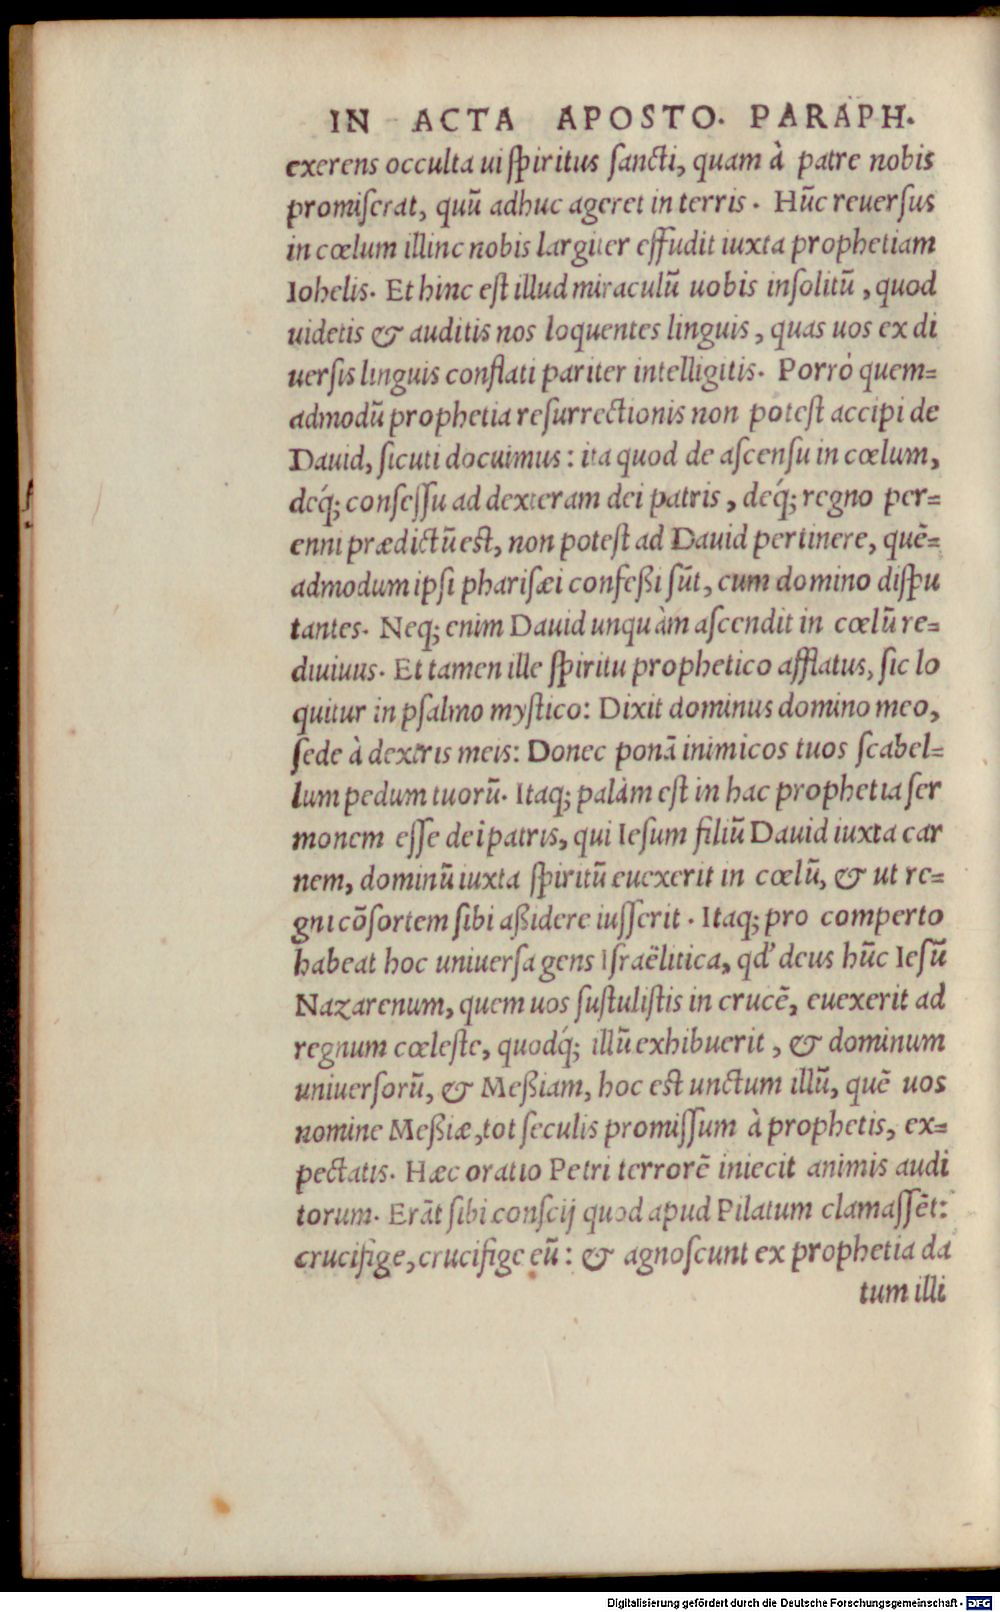 IN ACTA APOSTO. PARAPH.
exerens occulta ui ſpiritus ſancti, quam à patre nobis
promiſerat, quū adhuc ageret in terris. Hūc reuerſus
in cœlum illinc nobis largiter effudit iuxta prophetiam
Iohelis. Et hinc eſt illud miraculū uobis inſolitū, quod
uidetis & auditis nos loquentes linguis, quas uos ex di
uerſis linguis conflati pariter intelligitis. Porrò quem=
admodū prophetia reſurrectionis non poteſt accipi de
Dauid, ſicuti docuimus: ita quod de aſcenſu in cœlum,
deq́; conſeſſu ad dexteram dei patris, deq́; regno per=
enni prædictū est, non poteſt ad Dauid pertinere, quē=
admodum ipſi phariſæi confeßi ſūt, cum domino diſpu
tantes. Neq; enim Dauid unquàm aſcendit in cœlū re=
diuiuus. Et tamen ille ſpiritu prophetico afflatus, ſic lo
quitur in pſalmo myſtico: Dixit dominus domino meo,
ſede à dextris meis: Donec ponā inimicos tuos ſcabel=
lum pedum tuorū. Itaq; palàm eſt in hac prophetia ſer
monem eſſe dei patris, qui Ieſum filiū Dauid iuxta car
nem, dominū iuxta ſpiritū euexerit in cœlū, & ut re=
gni cōſortem ſibi aßidere iuſſerit. Itaq; pro comperto
habeat hoc uniuerſa gens Iſraëlitica, qd' deus hūc Ieſū
Nazarenum, quem uos ſuſtuliſtis in crucē, euexerit ad
regnum cœleſte, quodq́; illū exhibuerit, & dominum
uniuerſorū, & Meßiam, hoc est unctum illū, quē uos
nomine Meßiæ, tot ſeculis promiſſum à prophetis, ex=
pectatis. Hæc oratio Petri terrorē iniecit animis audi
torum. Erāt ſibi conſcij quod apud Pilatum clamaſſēt:
crucifige, crucifige eū: & agnoſcunt ex prophetia da
tum illi
Digitalisierung gefördert durch die Deutsche Forschungsgemeinschaft - DFG